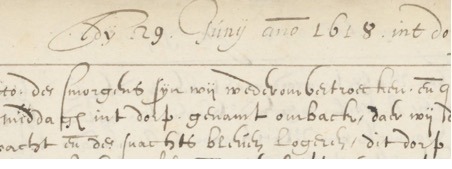 Ady 29. Junij año 1618. int do
dito. des smorgens sijn wij wederom vertrocken. eñ
middagh int dorp. genamt ombach, daer wij
nacht eñ des snachts bleven logeren, dit dorp